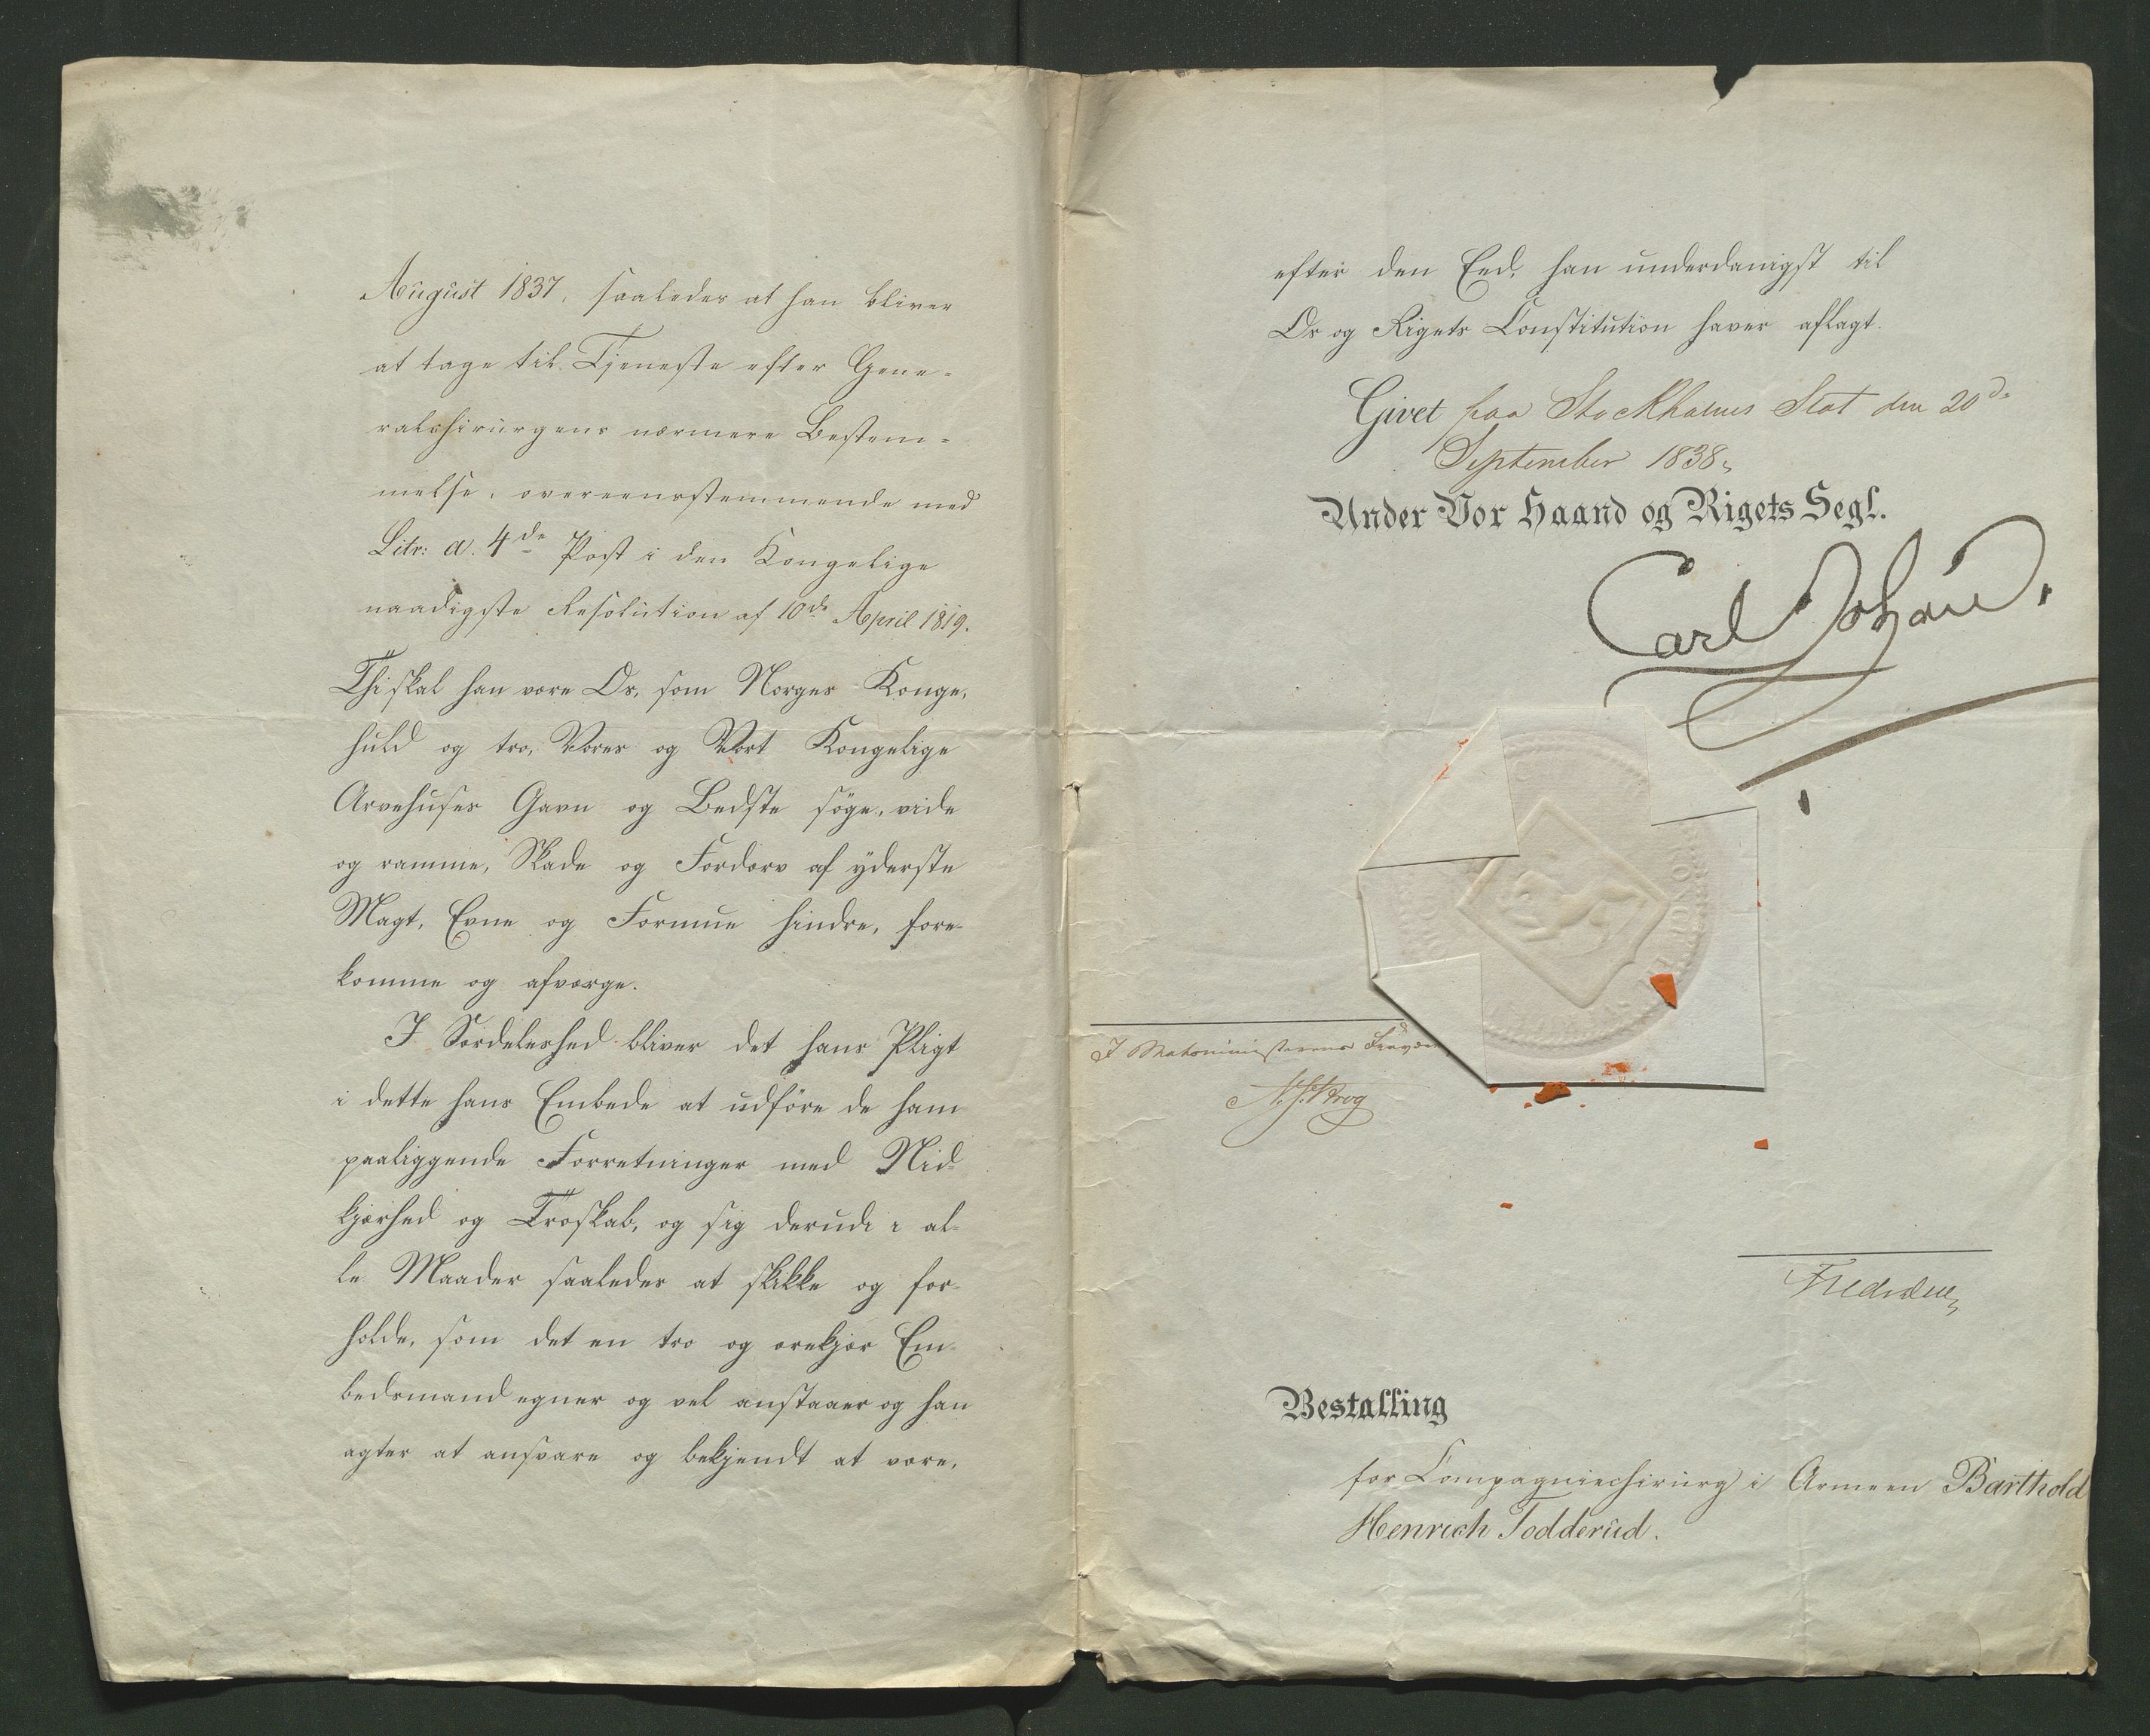 August 1837, saaledes at han bliver
at tage til Tjeneste efter Gene-
ralchirurgens nærmere Bestem-
melse, overeensstemmende med
Litr: a. 4de Post i den Kongelige
naadigste Resolution af 10de April 1819.
Thi skal han være Os, som Norges Konge,
huld og tro, Vores og Vort Kongelige
Arvehuses Gavn og Bedste söge, vide
og ramme, Skade og Fordærv af yderste
Magt, Evne og Formue hindre, fore-
komme og afværge.
I Særdeleshed bliver det hans Pligt
i dette hans Embede at udföre de ham
paaliggende Forretninger med Nid-
kjærhed og Troskab, og sig derudi i al-
le Maader saaledes at skikke og for-
holde, som det en tro og ærekjær Em-
bedsmand egner og vel anstaaer og han
agter at ansvare og bekjendt at være,
efter den Eed, han underdanigst til
Os og Rigets Constitution haver aflagt.
Givet paa Stockholms Slot den 20de
September 1838,
Under Vor Haand og Rigets Segl.
Carl Johan
I Statsministerens
Bestalling
for Compagniechirurg i Armeen Barthold
Henrich Todderud.